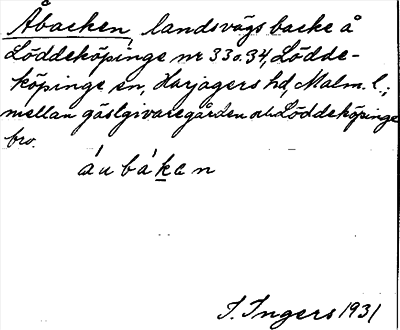 Åbacken, landsvägsbacke å
Löddeköpinge nr 33 o. 34, Lödde-
köpinge sn, Harjagers hd, Malm. l.;
mellan gästgivaregården och Löddeköpinge
bro.
áu bá ken
I. Ingers 1931